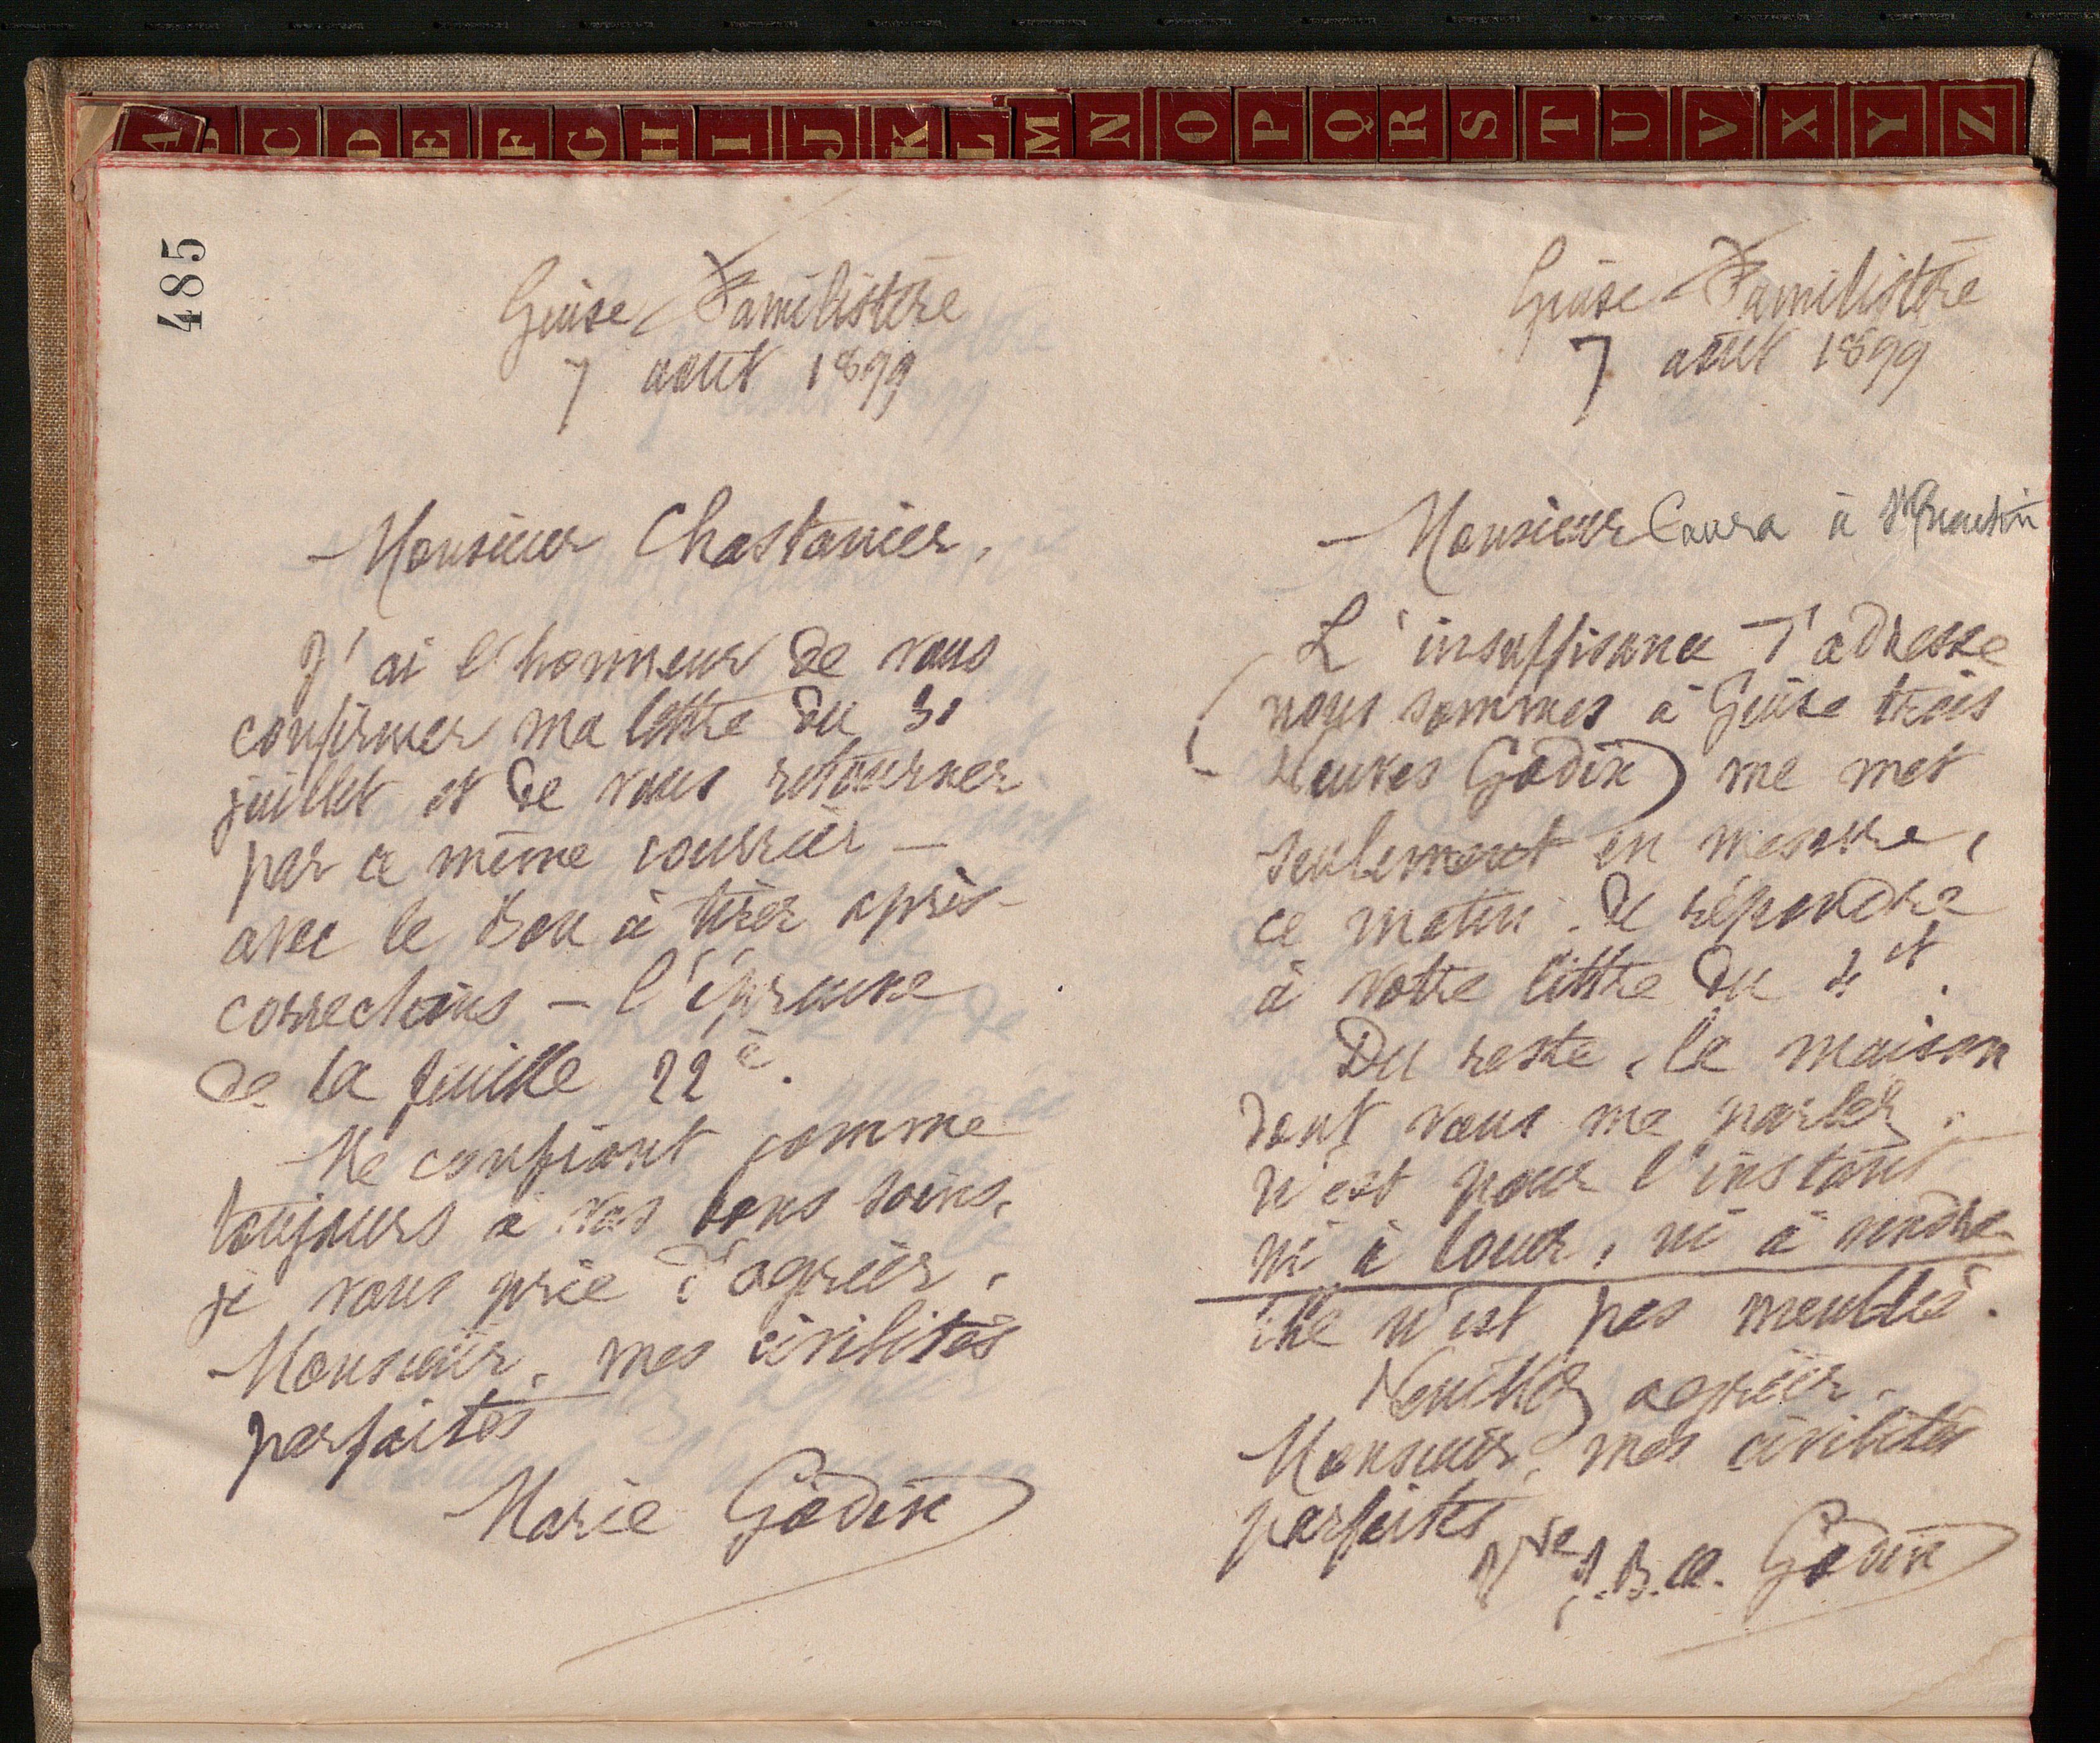 A B C D E F G H I J K L M N O P Q R S T U V X Y Z
485
Guise Familistère
7 août 1899
Monsieur Chastanier,
J'ai l'honneur de vous
confirmer ma lettre du 31
juillet et de vous retourner
par ce même courrier –
avec le bon à tirer après
corrections – l'épreuve
de la feuille 22e.
Me confiant comme
toujours à vos bons soins,
je vous prie d'agréer,
Monsieur, mes civilités
parfaites
Marie Godin
Guise Familistère
7 août 1899
Monsieur à St Quentin
L'insuffisance d'adresse
(nous sommes à Guise trois
Veuves Godin) me met
seulement en mesure,
ce matin, de répondre
à votre lettre du 4 ct.
Du reste, la maison
dont vous me parlez,
n'est pour l'instant
ni à louer, ni à vendre
elle n'est pas meublée.
Veuillez agréer,
Monsieur, mes civilités
parfaites
Vve J.B.A. Godin